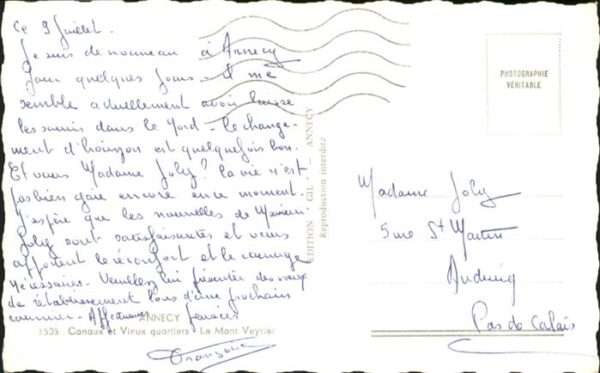 Ce 9 Juillet.
Je suis de nouveau à Annecy
pour quelques jours. Il me
semble actuellement avoir laissé
les soucis dans le Nord. le change-
ment d'horizon est quelquefois bon.
Et vous Madame Joly? la vie n'est
pas bien gaie encore en ce moment.
J'espère que les nouvelles de Monsieur
Joly sont satisfaisantes et vous
apportent le réconfort et le courage
nécessaires. Veuillez lui présenter des vœux
de rétablissement lors d'une prochain
courrier. Affectueuses pensées
Françoise
ANNECY
1535 Canaux et Vieux quartiers - Le Mont Veyrier
EDITION " GIL " - ANNECY
Reproduction interdite
PHOTOGRAPHIE
VERITABLE
Madame Joly
5 rue St Martin
Audruicq
Pas de Calais